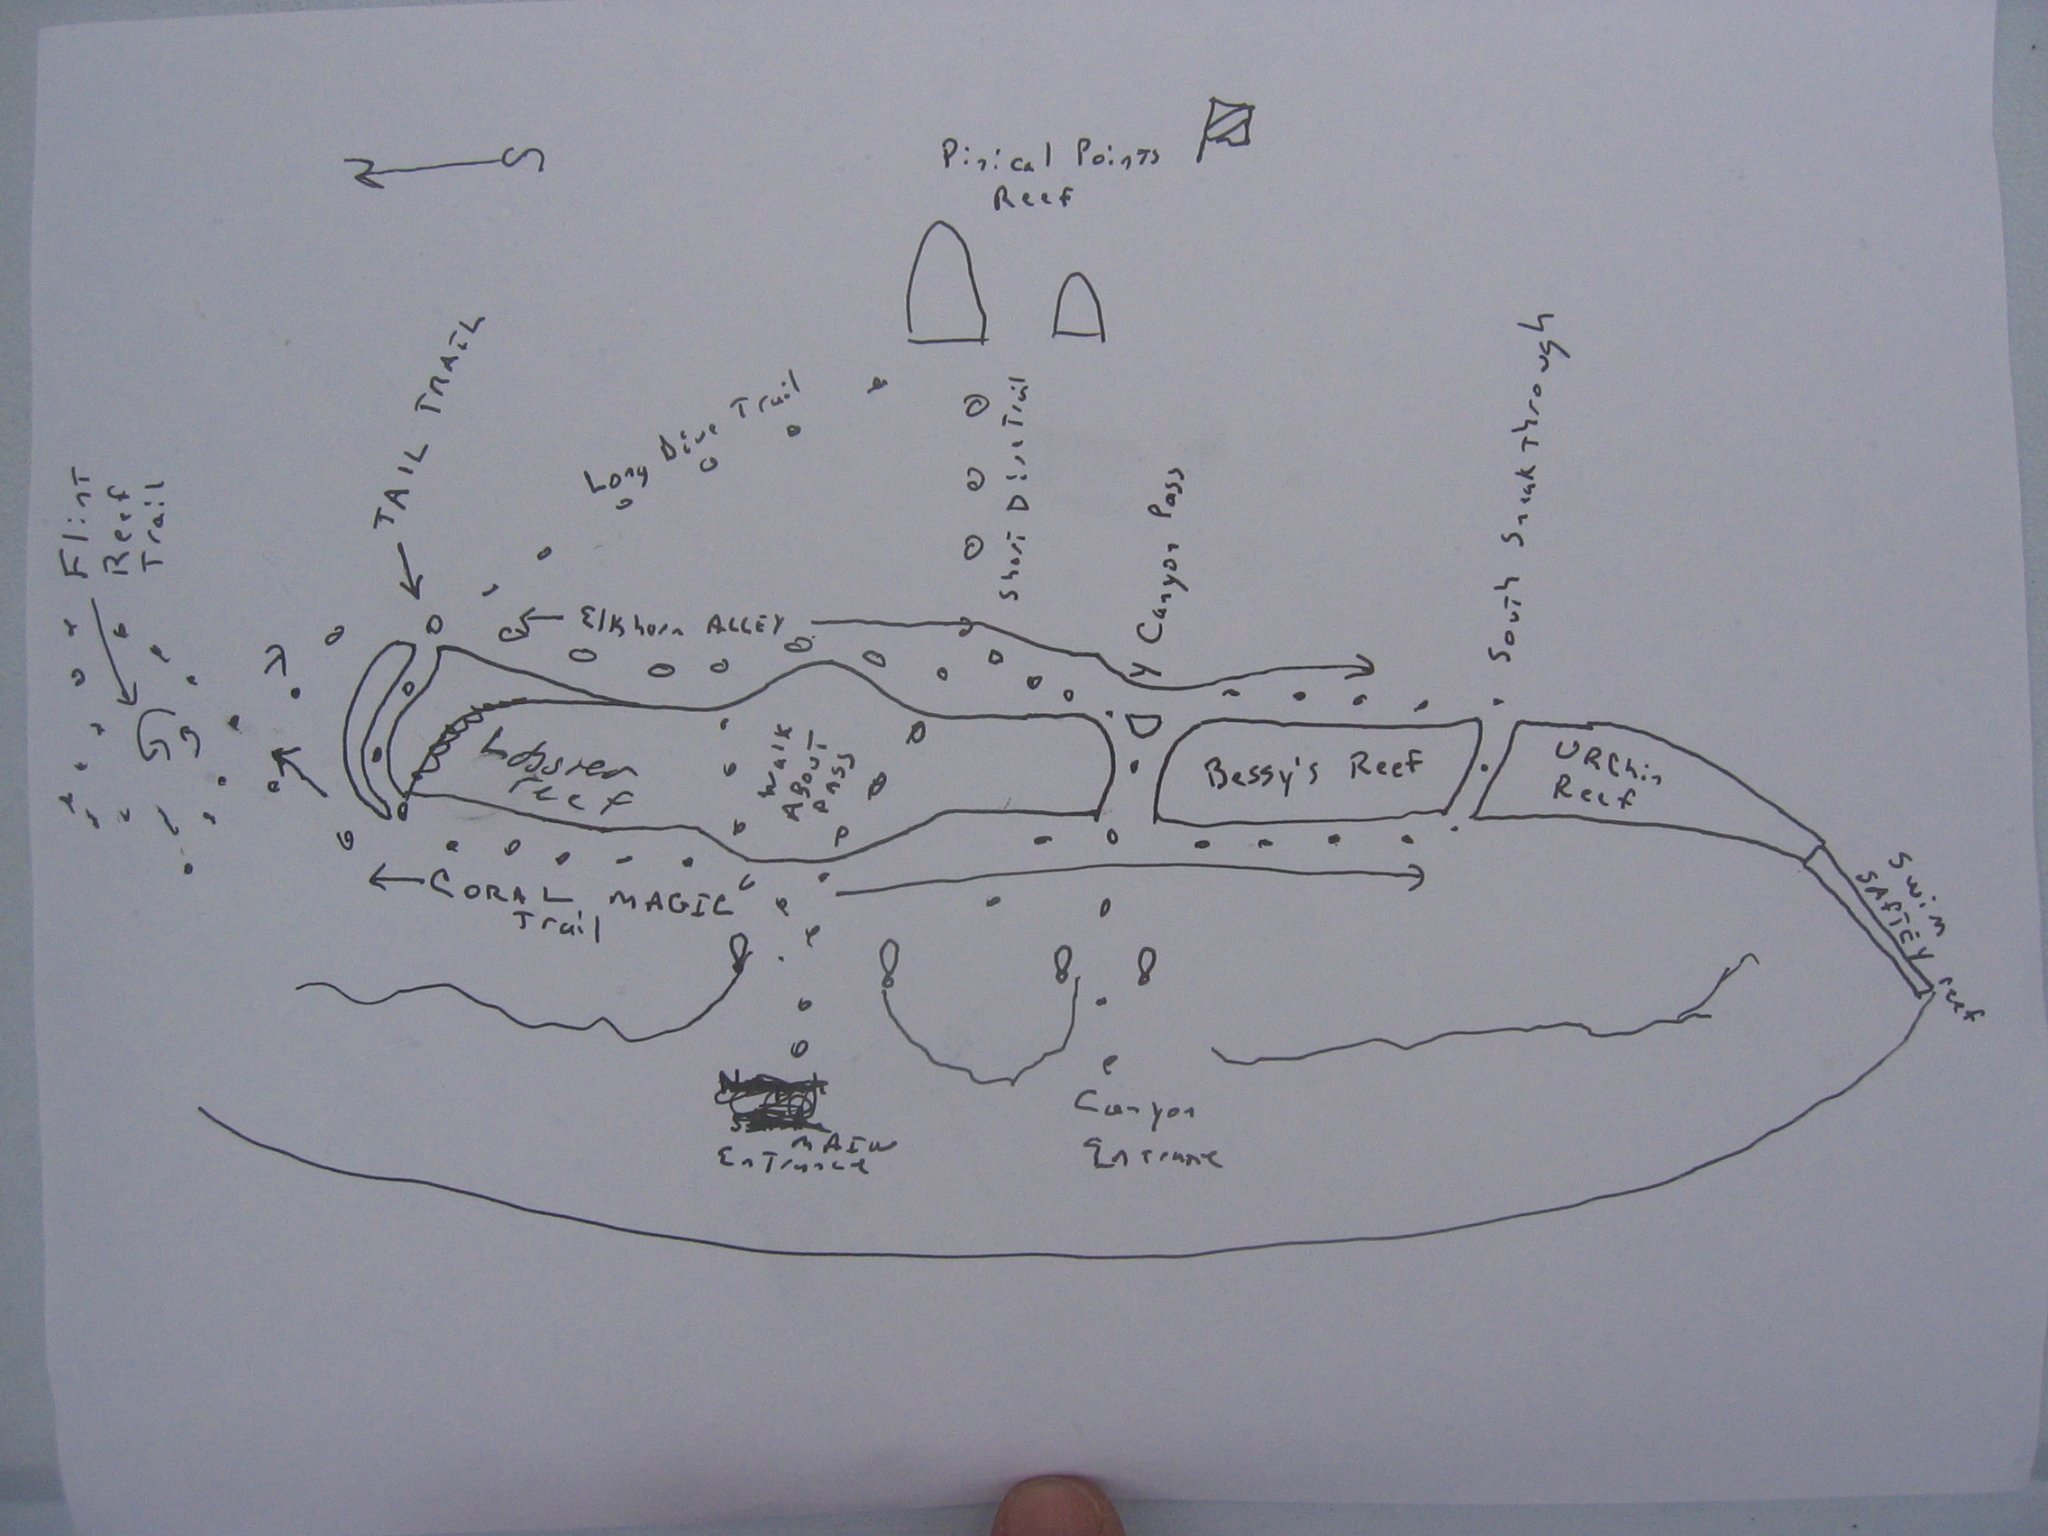 S
Pinical Points
Reef
TAIL TRAIL
Long Dive Trail
Short Dive Trail
Canyon Pass
South Sneak through
Flint
Reef
Trail
Elkhorn ALLEY
Lobster
reef
Walk
About
Pass
Bessy's Reef
URChin
Reef
SWim
SAfTEY reef
CORAL MAGIC
Trail
MAIN
EnTrance
Canyon
Entrance